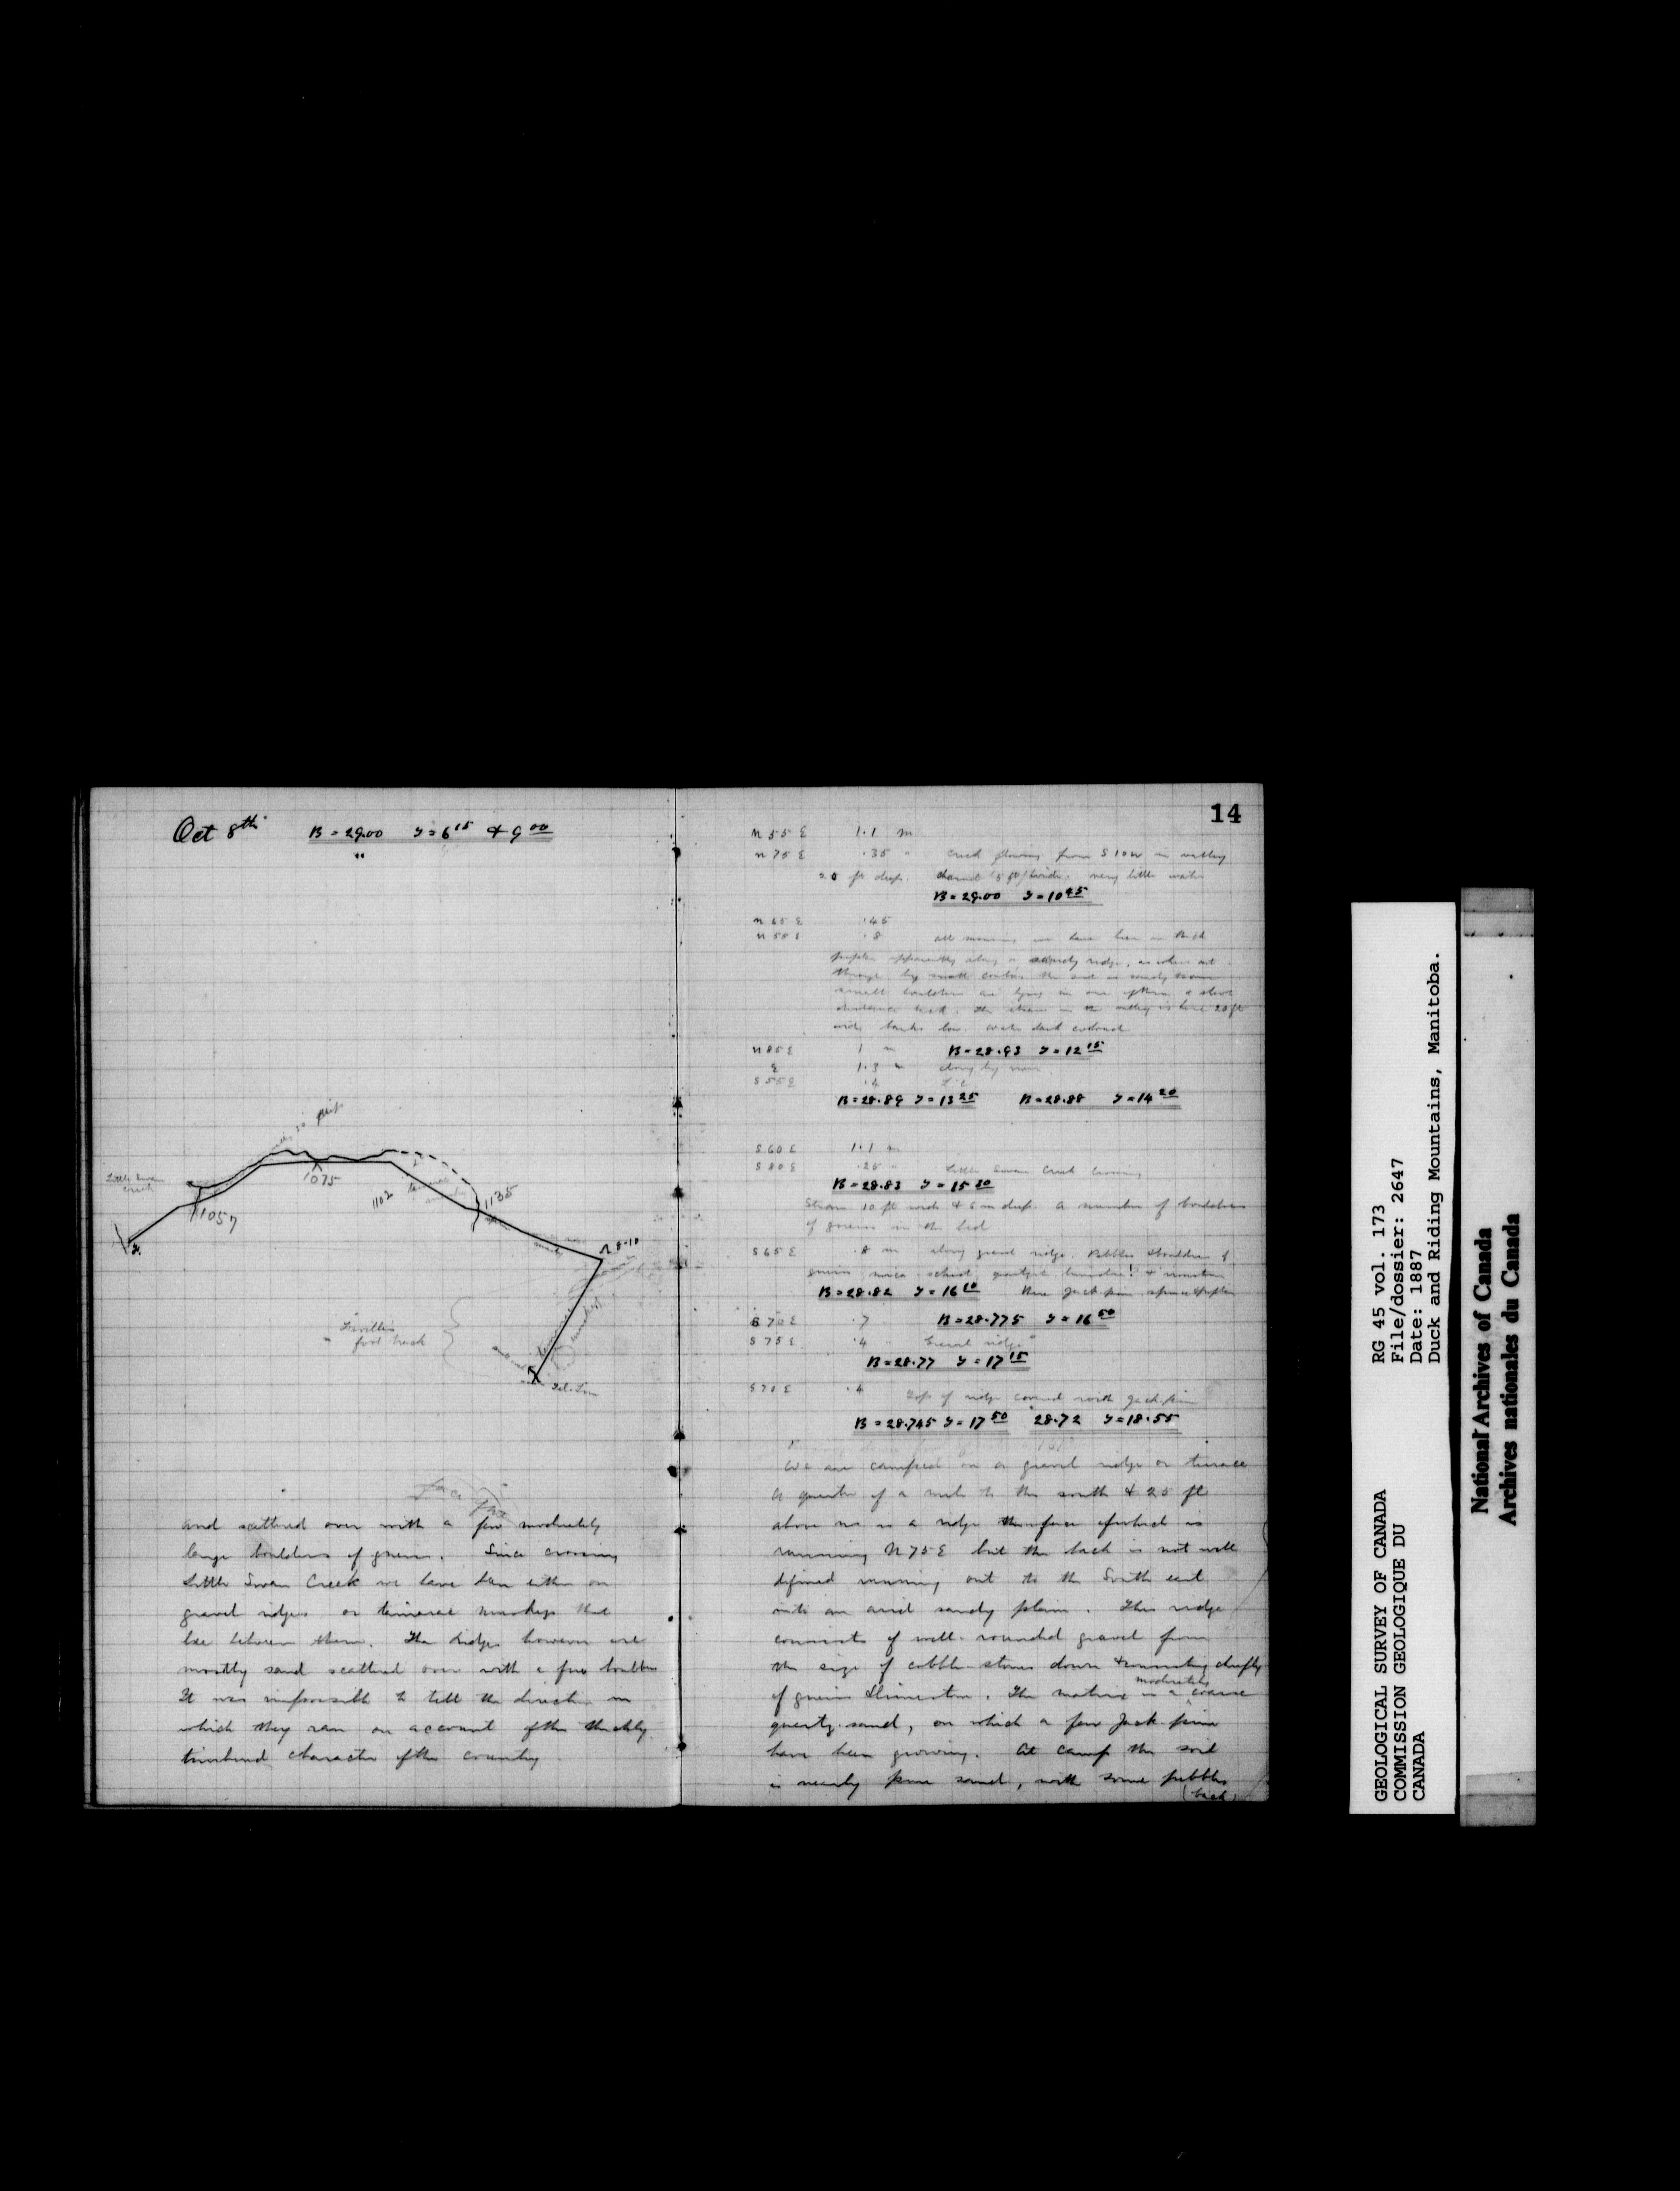 Oct 8th B = 29.00 T = 6 15 & 9 00
"
Little Swan
Creek
1057
1075
1102
1135
8-10
foot track
Tel. Line
and scattered over with a few moderately
large boulders of gneiss. Since crossing
Little Swan Creek we have been either on
gravel ridges or tamarac muskegs that
lie between them. The ridges however are
mostly sand scattered over with a few boulders
It was impossible to tell the direction in
which they ran on account of the thickly
timbered character of the country
14
N 55 E 1.1 m
N 75 E .35 " Creek flowing from S 10 W in valley
20 ft deep. Channel 15 ft wide, very little water
B = 29.00 T = 10 45
N 65 E .45
N 55 E .8 All morning we have been in thick
poplar apparently along a sandy ridge, as when cut
through by small coulées the soil is sandy
small boulders are lying in one of them a short
distance back. The stream in the valley is here 20 ft
wide, banks low. Water dark coloured
N 85 E 1 m B = 28.93 T = 12 15
E 1.3 " along by river
S 55 E .4
B = 28.89 T = 13 25 B = 28.88 T = 14 20
S 60 E 1.1 m
S 80 E .25 " Little Swan Creek Crossing
B = 28.83 T = 15 30
Stream 10 ft wide & 6 in deep. A number of boulders
of gneiss in the bed
S 65 E .8 m along gravel ridge. Pebbles & boulders of
gneiss, mica schist, quartzite, limestone! &
B = 28.82 T = 16 10 Here Jack pine, spruce & poplar
S 70 E .7 B = 28.775 T = 16 50
S 75 E .4 " Gravel ridge
B = 28.77 T = 17 15
S 70 E .4 Top of ridge covered with Jack pine
B = 28.745 T = 17 50 28.72 T = 18.55
We are camped on a gravel ridge or terrace
A quarter of a mile to the south & 25 ft
above us is a ridge the face of which is
running N 75 E but the back is not well
defined running out to the South east
into an arid sandy plain. This ridge
consists of well-rounded gravel from
the size of cobble-stones down & consisting chiefly
of gneiss & limestone. The matrix is a moderately coarse
quartz-sand, on which a few Jack-pine
have been growing. At camp the soil
is nearly pure sand, with some pebbles
(back)
GEOLOGICAL SURVEY OF CANADA
COMMISSION GEOLOGIQUE DU
CANADA
RG 45 vol. 173
File/dossier: 2647
Date: 1887
Duck and Riding Mountains, Manitoba.
National Archives of Canada
Archives nationales du Canada